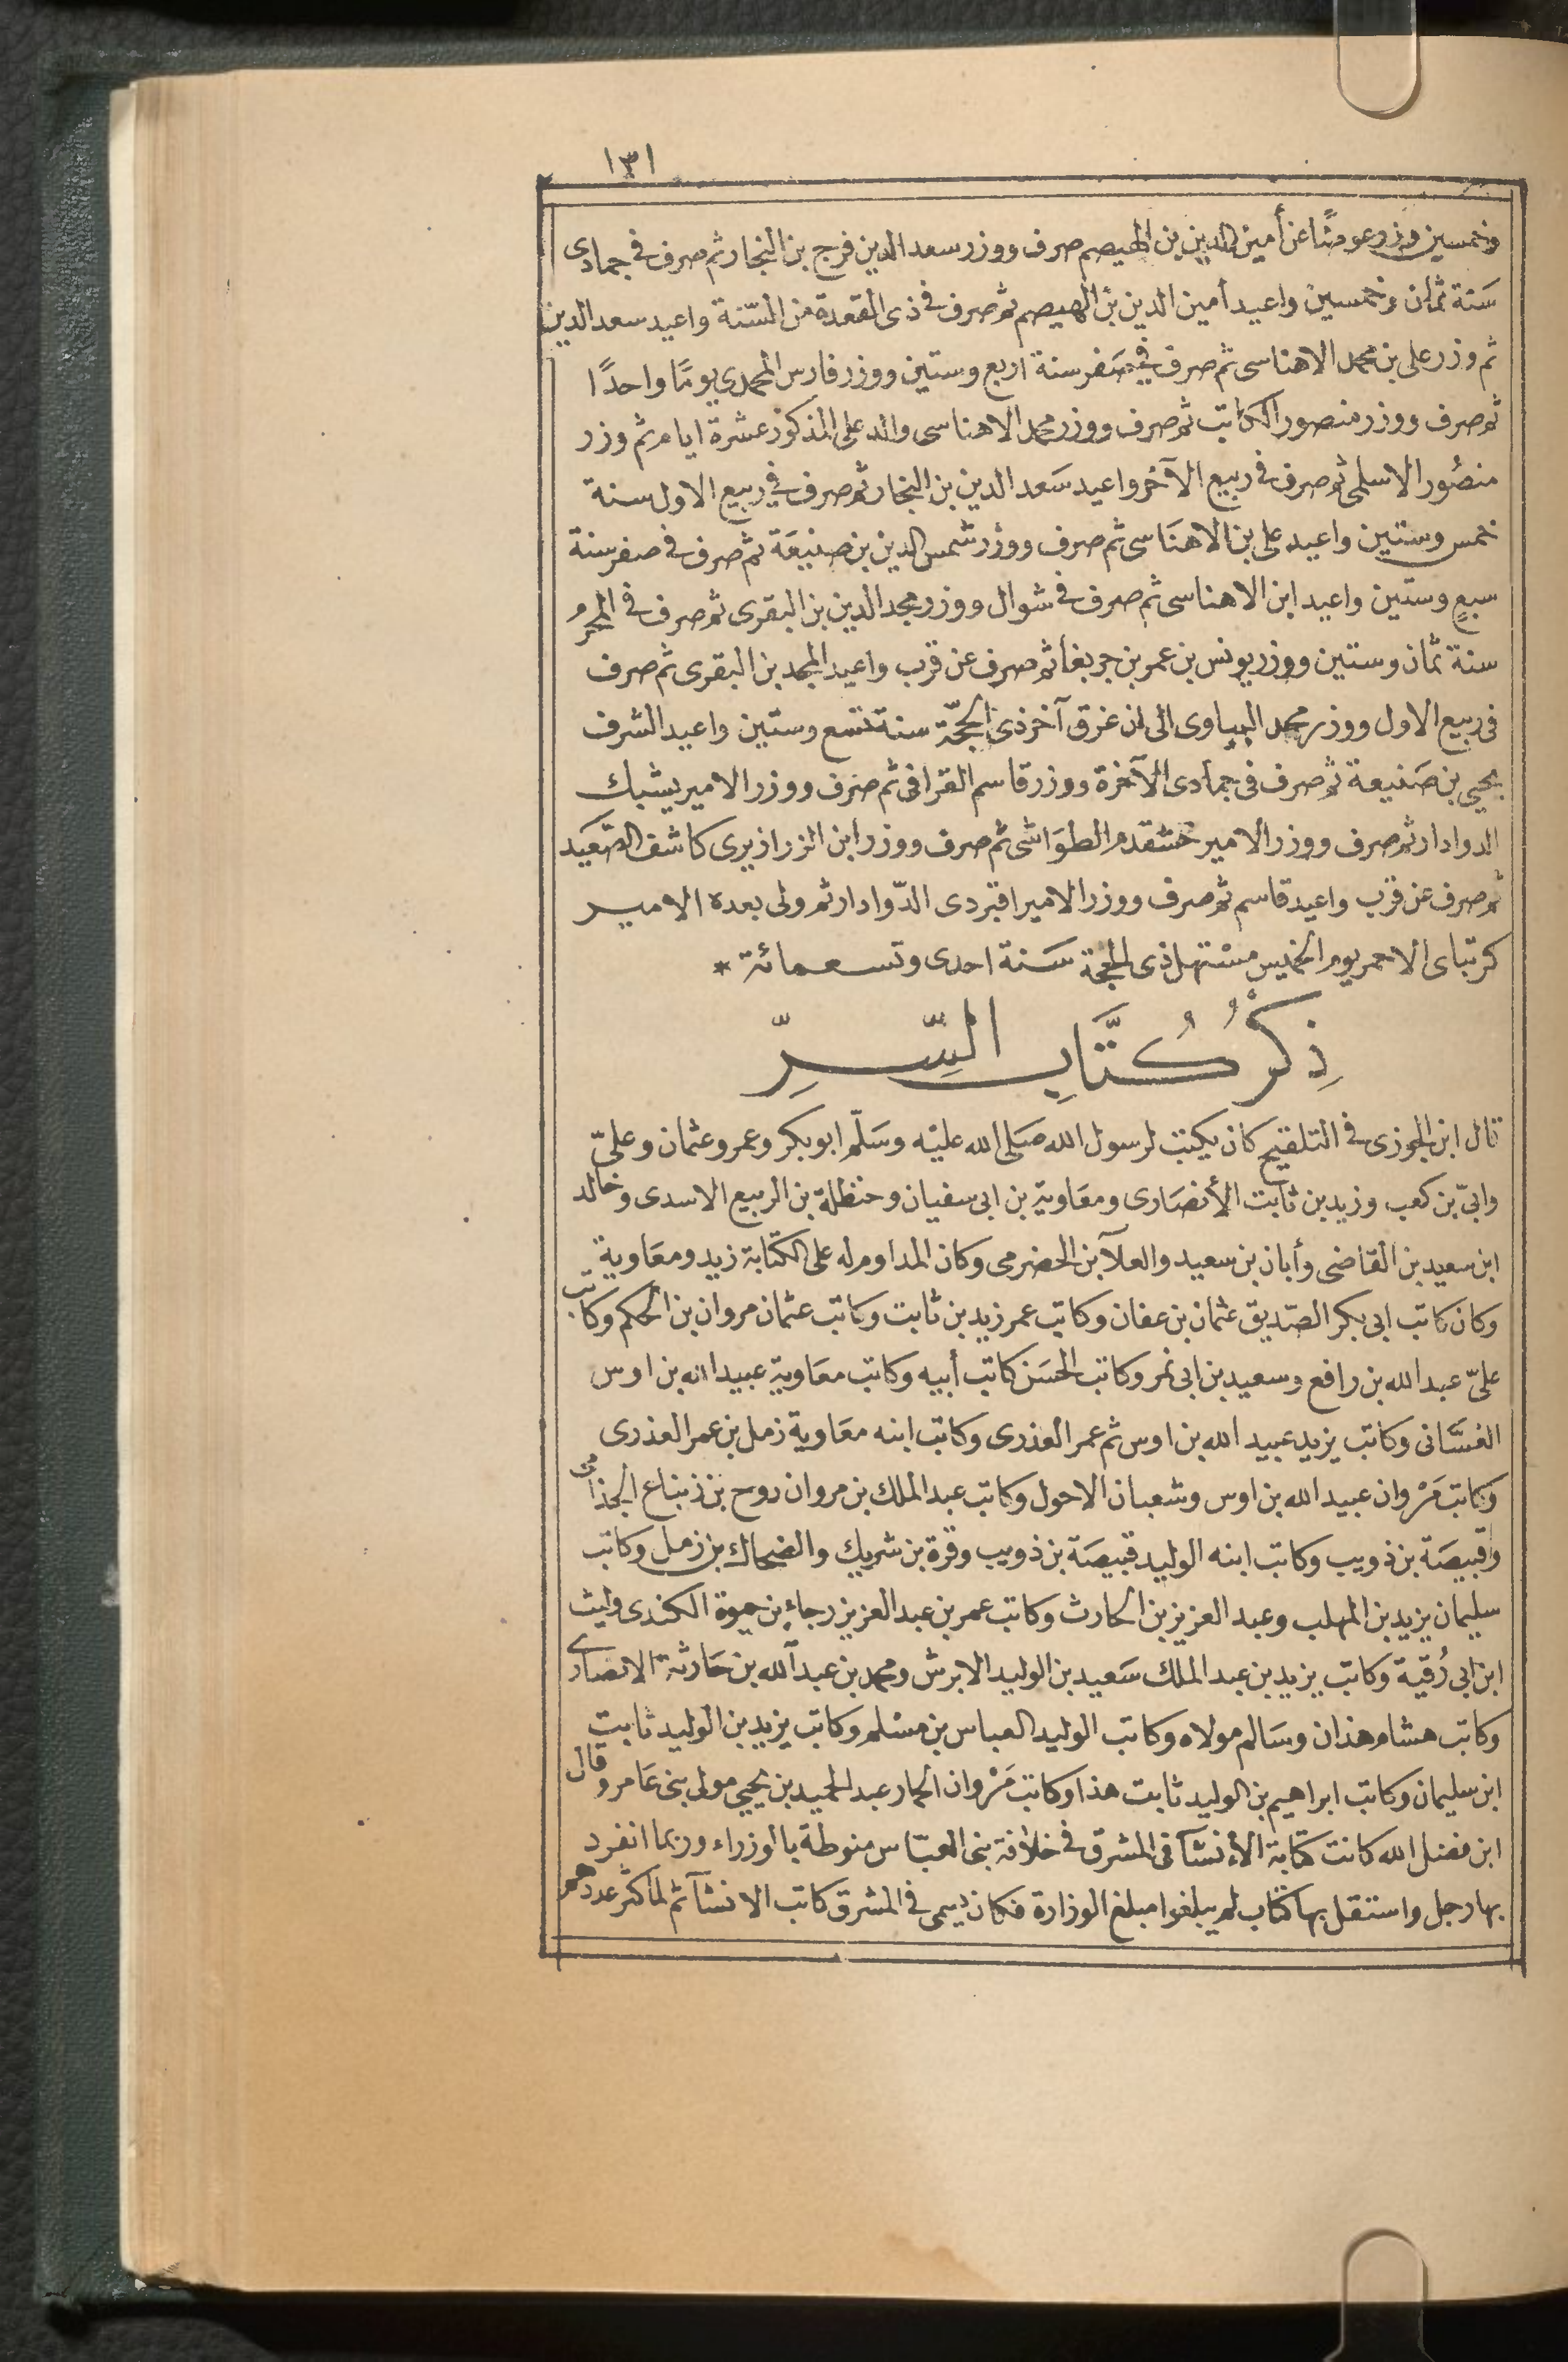 ١٣١
وخمسين وزر عوضًا عن أمين الدين بن الهيصم صرف ووزر سعد الدين فرج بن النجار ثم صرف فى جمادى
سَنة ثمان وخمسين واعيد أمين الدين بن الهيصم ثم صرف فى ذى القعدة من السّنة واعيد سعد الدين
ثم وزر على بن محمد الاهناسى ثم صرف فى صَفر سنة اربع وستين ووزر فارس المحمدى يومًا واحدًا
ثم صرف ووزر منصور الكاتب ثم صرف ووزر محمد الاهناسى والد على المذكور عشرة ايام ثم وزر
منصُور الاسلمى ثم صرف فى ربيع الآخر واعيد سَعد الدين بن النجار ثم صرف فى ربيع الاول سنة
خمس وستين واعيد على بن الاهنَاسى ثم صرف ووزر شمس الدين بن صنيعَة ثم صرف فى صفر سنة
سبع وستين واعيد ابن الاهناسى ثم صرف فى شوال ووزر مجد الدين بن البقرى ثم صرف فى المحرم
سنة ثمان وستين ووزر يونس بن عمر بن جربغا ثم صرف عن قرب واعيد المجد بن البقرى ثم صرف
فى ربيع الاول ووزر محمد البباوى الى ان غرق آخر ذى الحجّة سنة تسع وستين واعيد الشرف
يحيى بن صَنيعة ثم صرف فى جمادى الآخرة ووزر قاسم القرافى ثم صرف ووزر الامير يشبك
الدوادار ثم صرف ووزر الامير خشقدم الطوَاشى ثم صرف ووزر ابن الزرازيرى كاشف الصّعيد
ثم صرف عن قرب واعيد قاسم ثم صرف ووزر الامير اقبردى الدّوادار ثم ولى بعده الامير
كرتباى الاحمر يوم الخميس مسْتهل ذى الحجة سَنة احدى وتسعمائة *
ذِكْرُ كُتَّابِ السِّرِّ
قال ابن الجوزى فى التلقيح كان يكتب لرسول الله صَلى الله عليْه وسَلّم ابو بكر وعمر وعثمان وعلىّ
وابىّ بن كعب وزيد بن ثابت الأنصَارى ومعَاوية بن ابى سفيان وحنظلة بن الربيع الاسدى وخالد
ابن سعيد بن القاضى وأبان بن سعيد والعلآ بن الحضرمى وكان المداوم له على الكتابة زيد ومعَاوية
وكان كاتب ابى بكر الصّديق عثمان بن عفان وكاتب عمر زيد بن ثابت وكاتب عثمان مروان بن الحكم وكاتب
علىّ عبد الله بن رافع وسعيد بن ابى نمر وكاتب الحسَن كاتب أبيه وكاتب معَاوية عبيد الله بن اوس
الغسَّانى وكاتب يزيد عبيد الله بن اوس ثم عمر العذرى وكاتب ابنه معَاوية زمل بن عمر العذرى
وكاتب مَرْوان عبيد الله بن اوس وشعبان الاحول وكاتب عبد الملك بن مروان روح بن زنباع الجذامى
وقبيصَة بن ذويب وكاتب ابنه الوليد قبيصَة بن ذويب وقرة بن شريك والضحاك بن زمل وكاتب
سليمان يزيد بن المهلب وعبد العزيز بن الحارث وكاتب عمر بن عبد العزيز رجاء بن حيوة الكندى وليث
ابن ابى رُقية وكاتب يزيد بن عبد الملك سَعيد بن الوليد الابرش ومحمد بن عبد آلله بن حَارثة الانصارى
وكاتب هشام هذان وسَالم مولاه وكاتب الوليد العباس بن مسْلم وكاتب يزيد بن الوليد ثابت
ابن سليمان وكاتب ابراهيم بن الوليد ثابت هذا وكاتب مَرْوان الحمار عبد الحميد بن يحيى مولى بنى عَامر وقال
ابن فضل الله كانت كتابة الأنشآ فى المشرق فى خلافة بنى العبّاس منوطة بالوزراء وربما انفرد
بها رجل واستقل بها كتّاب لم يبلغوا مبلغ الوزارة فكان يسمى فى المشرق كاتب الانشآ ثم لما كثر عددهم